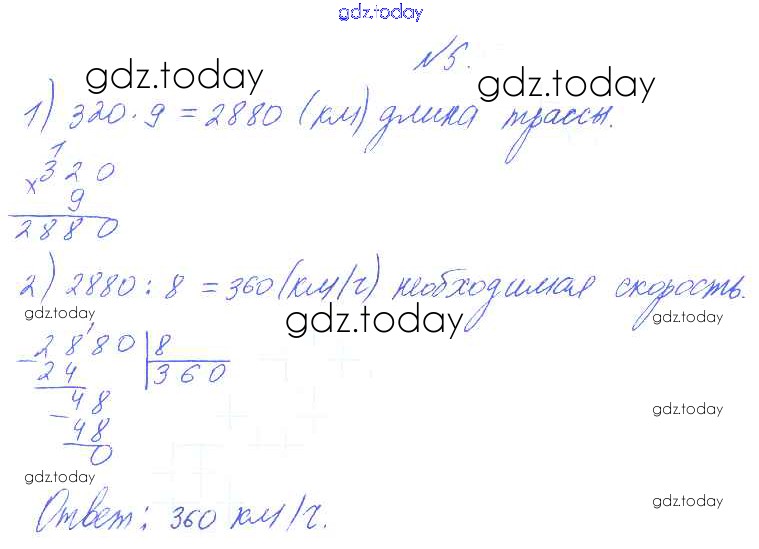 gdz.today
№5.
gdz.today gdz.today
1) 320 · 9 = 2880 (км) длина трассы.
1
× 320
9
2880
2) 2880 : 8 = 360 (км/ч) необходимая скорость.
gdz.today gdz.today gdz.today
- 2880 | 8
24 | 360
- 48 gdz.today
48
0
gdz.today
gdz.today
Ответ: 360 км/ч.